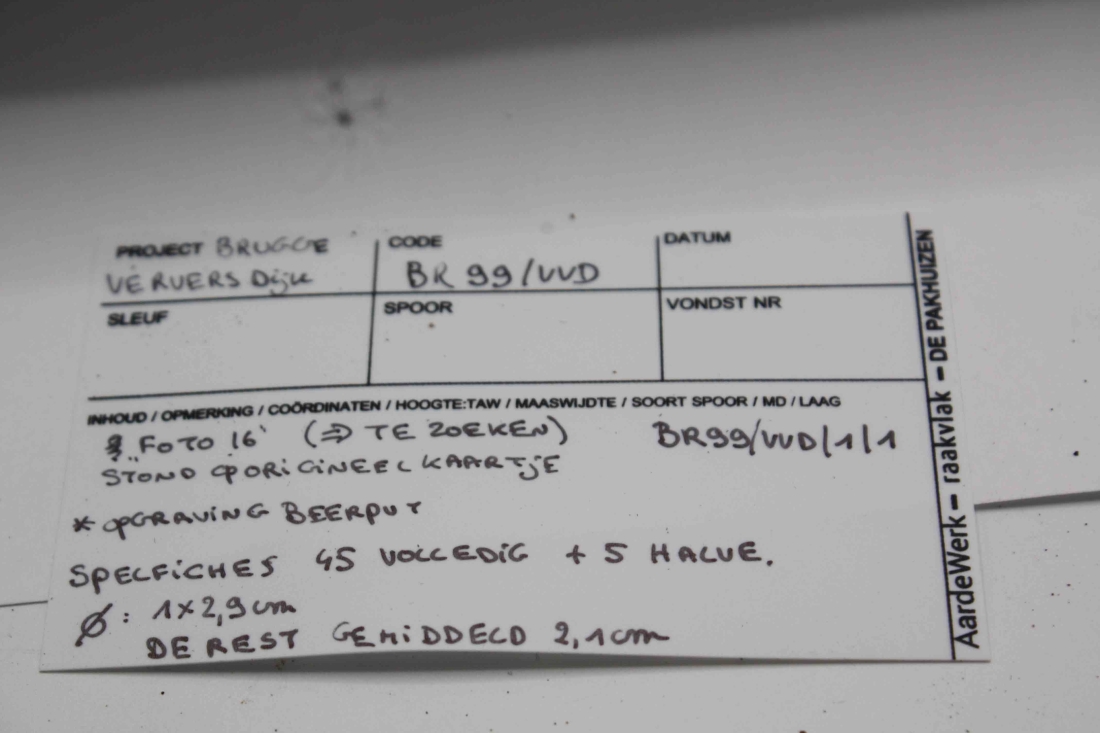 PROJECT BRUGGE
VERVERS Dijk
CODE
BR 99/VVD
DATUM
SLEUF
SPOOR
VONDST NR
INHOUD / OPMERKING / COÖRDINATEN / HOOGTE:TAW / MAASWIJDTE / SOORT SPOOR / MD / LAAG
"FOTO 16" (⇒ TE ZOEKEN)
BR99/VVD/1/1
STOND OP ORIGINEEL KAARTJE
* OPGRAVING BEERPUT
SPELFICHES 45 VOLLEDIG + 5 HALVE.
Ø: 1x2,9cm
DE REST GEMIDDELD 2,1cm
AardeWerk – raakvlak – DE PAKHUIZEN